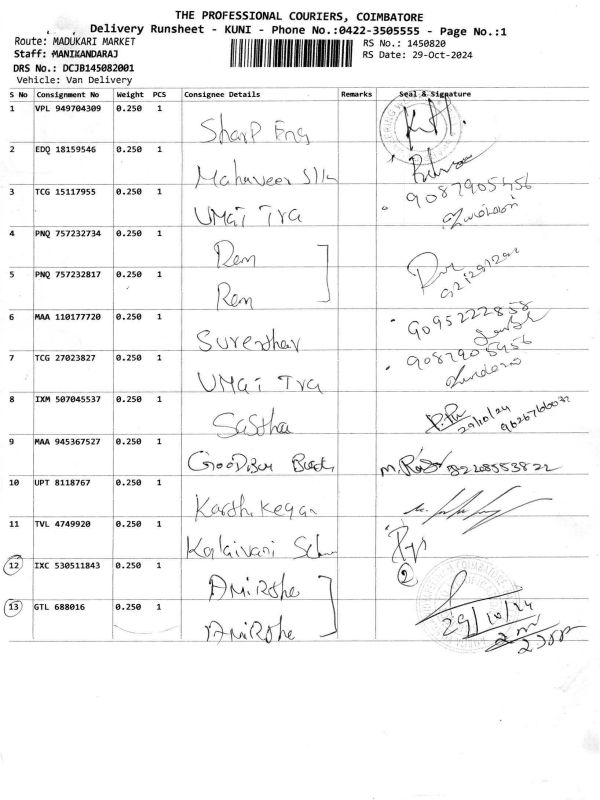 THE PROFESSIONAL COURIERS, COIMBATORE
Delivery Runsheet - KUNI - Phone No.:0422-3505555 - Page No.:1
Route: MADUKARI MARKET
RS No.: 1450820
Staff: MANIKANDARAJ
RS Date: 29-Oct-2024
DRS No.: DCJB145082001
Vehicle: Van Delivery
S No Consignment No Weight PCS Consignee Details Remarks Seal & Signature
1 VPL 949704309 0.250 1 Sharp Eng
2 EDQ 18159546 0.250 1 Mahaveer
3 TCG 15117955 0.250 1 UMai Tra 9087905456
4 PNQ 757232734 0.250 1
5 PNQ 757232817 0.250 1
6 MAA 110177720 0.250 1 9095222858
7 TCG 27023827 0.250 1 UMai Tra 9087905456
8 IXM 507045537 0.250 1 Sastha 29/10/24
9 MAA 945367527 0.250 1
10 UPT 8118767 0.250 1 Karthikeyan
11 TVL 4749920 0.250 1 Kalaivani
12 IXC 530511843 0.250 1 2
13 GTL 688016 0.250 1 29/10/24